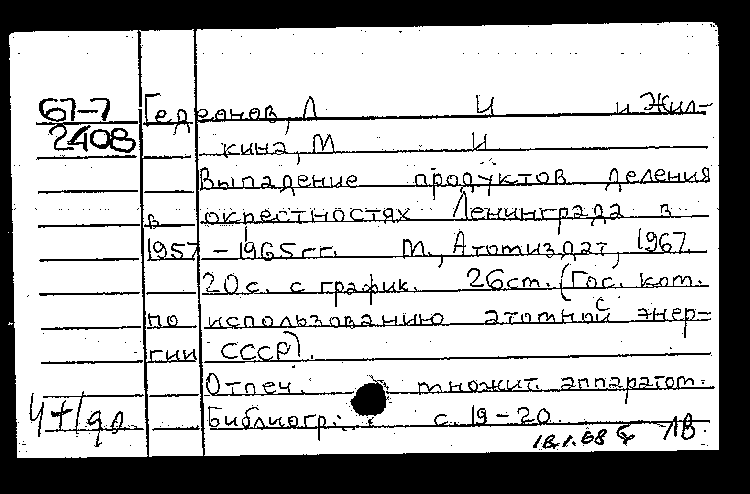 67-7 Гедеонов, Л И и Жил-
2408 кина, М И
Выпадение продуктов деления
в окрестностях Ленинграда в
1957 - 1965 гг. М., Атомиздат, 1967.
20 с. с график. 26 см. (Гос. ком.
по использованию атомной энер-
гии СССР).
Отпеч. множит. аппаратом.
Библиогр.: с. 19-20.
18.1.68 ЛВ